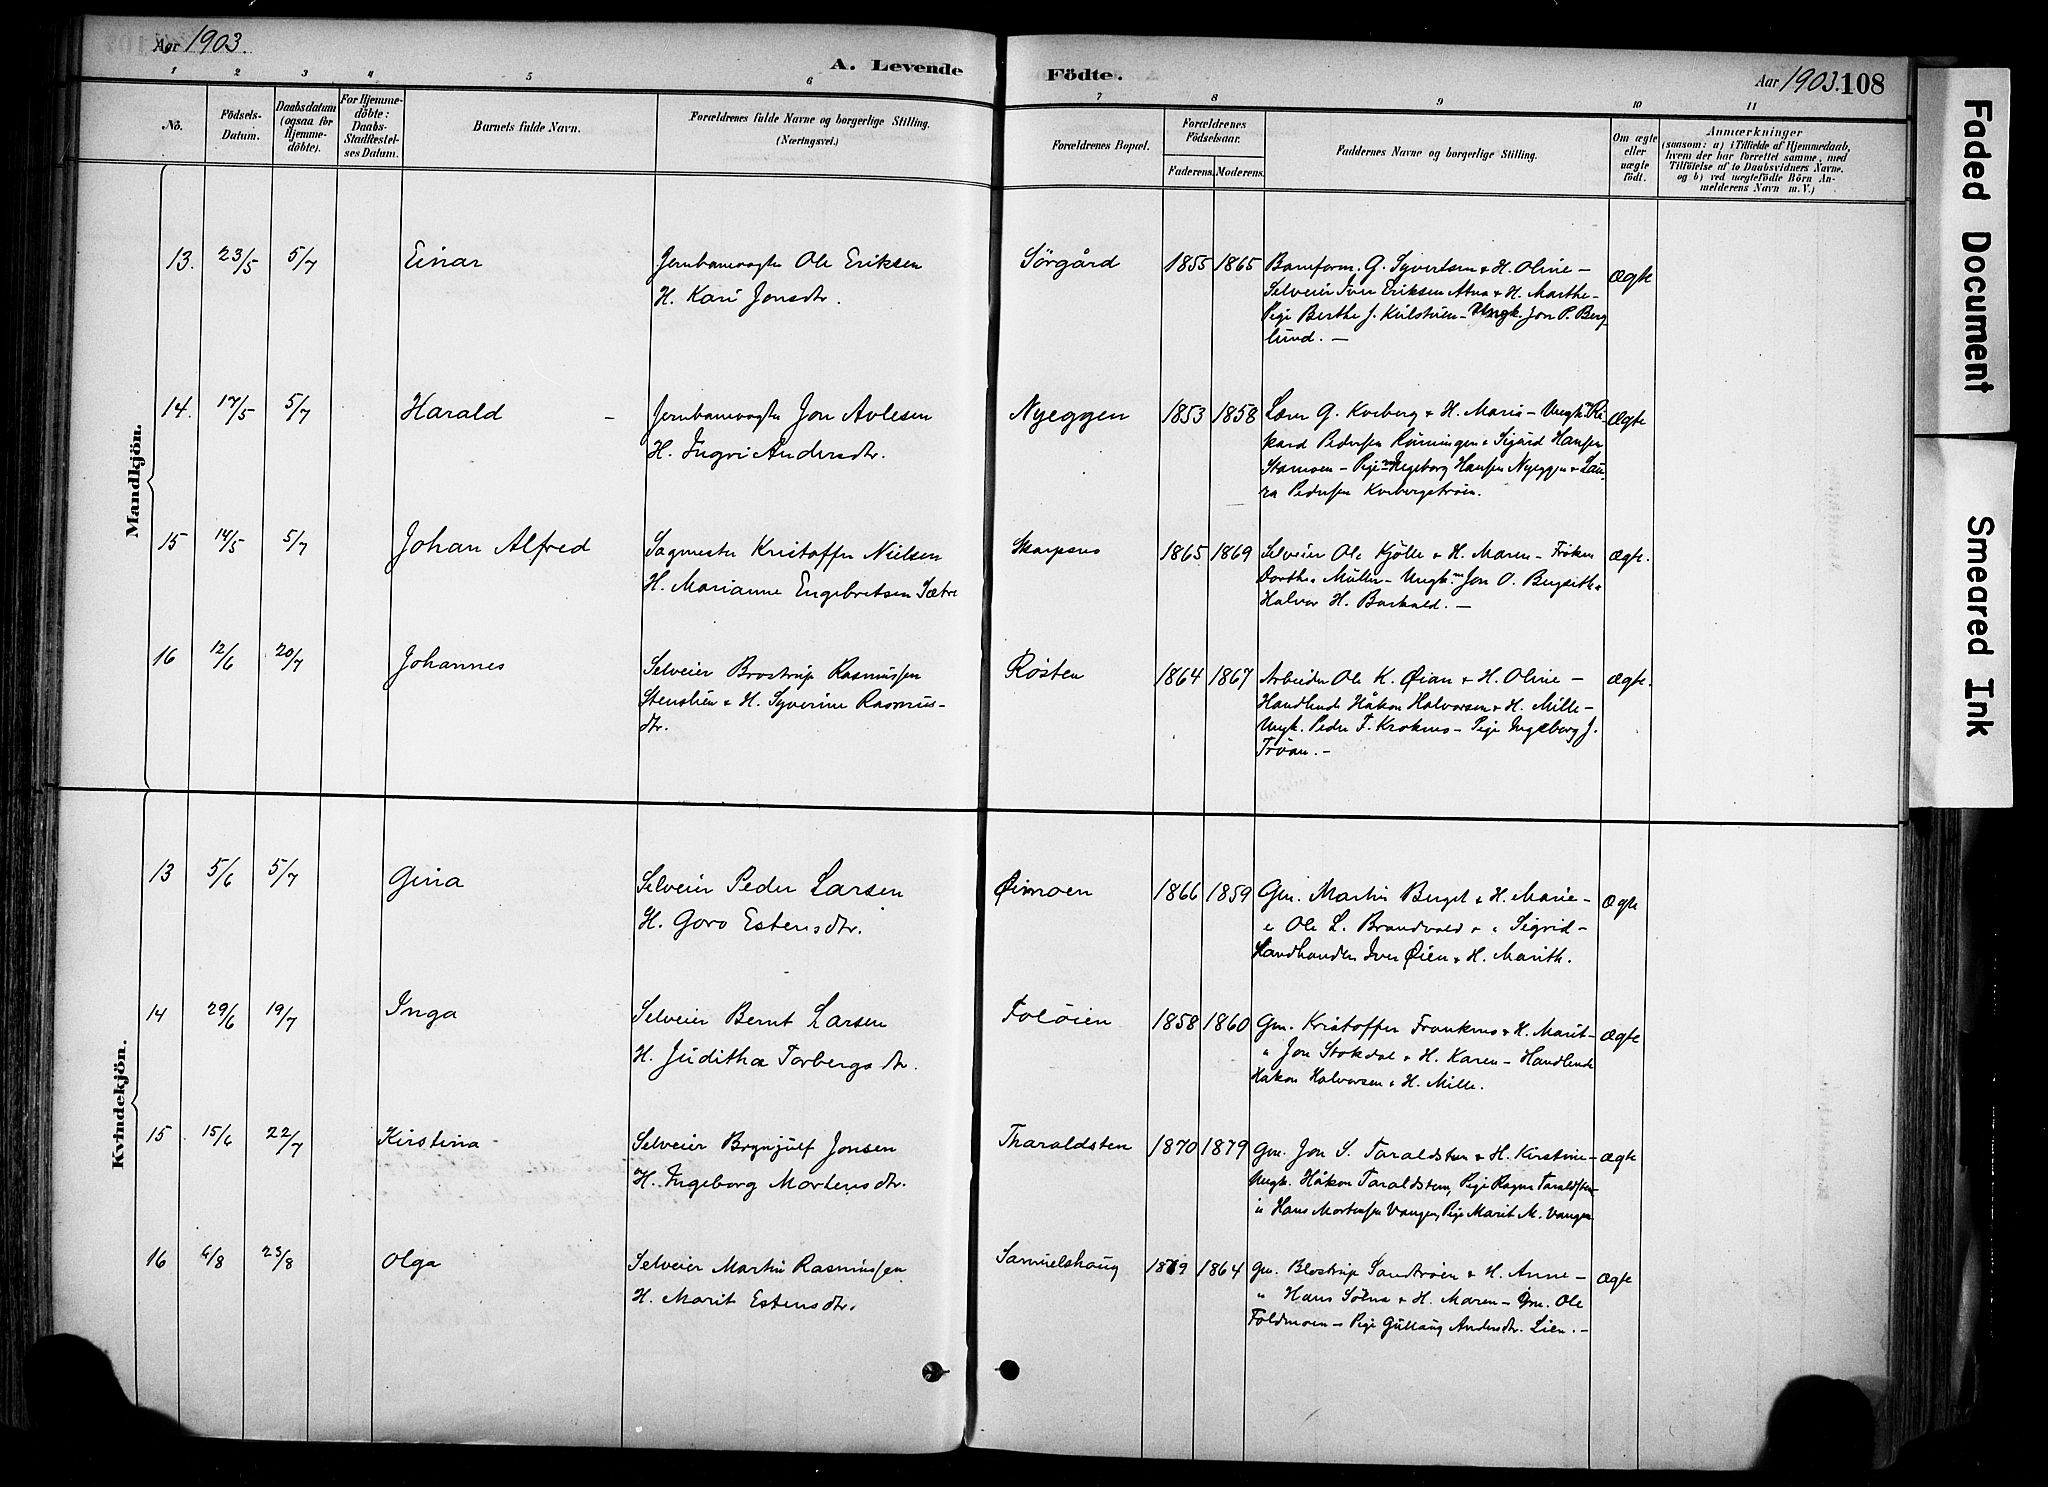 Aar 1903.
A. Levende Födte.
Aar 1903. 108
1 2 3 4 5 6 7 8 9 10 11
No.
Födsels-
Datum.
Daabsdatum
(ogsaa for
Hjemme-
döbte).
For Hjemme-
döbte:
Daabs-
Stadfæstel-
ses Datum.
Barnets fulde Navn.
Forældrenes fulde Navne og borgerlige Stilling.
(Næringsvei.)
Forældrenes Bopæl.
Forældrenes
Födselsaar.
Faderens. Moderens.
Faddernes Navne og borgerlige Stilling.
Om ægte
eller
uægte
födt.
Anmærkninger
(saasom: a) i Tilfælde af Hjemmedaab,
hvem der har forrettet samme, med
Tilföielse af to Daabsvidners Navne.
og b) ved uægtefödte Börn An-
melderens Navn m. V.)
Mandkjön.
13. 23/5 5/7 Einar
Jernbanevogter Ole Eriksen
H. Kari Jonsdtr.
Sörgård 1855 1865
Baneform. G. Syvertsen & H. Oline –
Selveier Iver Eriksen Atna & H. Marthe –
Pige Berthe J. – Ungk. Jon P. Berg-
lund. –
Ægte
14. 17/5 5/7 Harald
Jernbanevogter Jon Avlesen
H. Ingri Andersdtr.
Nyeggen 1853 1858
Lærer G. Kveberg & H. Maria – Ungk. Ri-
kard Pedersen Rönningen & Sigurd Hansen
Stamoen – Pige Ingeborg Hansen Nyeggen & Lau-
ra Pedersen Kvebergströen.
Ægte
15 14/5 5/7 Johan Alfred
Sagmester Kristoffer Nielsen
H. Marianne Engebretsen Sætre
Skarpsno 1865 1869
Selveier Ole Kjölle & H. Maren – Fröken
Dorthea Müller – Ungk. Jon O. &
Halvor H. Barkald. –
ægte.
16 12/6 20/7 Johannes
Selveier Brostrup Rasmussen
Stenslien & H. Syverine Rasmus-
dtr.
Rösten 1864 1867
Arbeider Ole K. Øian & H. Oline –
Handlende Håkon Halvorsen & H. Mille –
Ungk. Peder F. Kroknes – Pige Ingeborg J.
Tröan. –
ægte.
Kvindekjön.
13 5/6 5/7 Gina
Selveier Peder Larsen
H. Goro Estensdtr.
Øimoen 1866 1859
Gm. Martin Berget & H. Marie –
" Ole L. Brandvold & " Sigrid –
Landhandler Iver Øien & H. Marith.
Ægte
14 29/6 19/7 Inga
Selveier Bernt Larsen
H. Juditha Torbergsdtr.
Toløien 1858 1860
Gm. Kristoffer Fronknes & H. Marit –
" Jon Stokdal & H. Karen – Handlende
Håkon Halvorsen & H. Mille.
Ægte
15 15/6 22/7 Kirstina
Selveier Brynjulf Jonsen
H. Ingeborg Mortensdtr.
Tharaldsten 1870 1879
Gm. Jon S. Taraldsten & H. Kirstine –
Ungk. Håkon Taraldsten, Pige Ragna Taraldsten –
" Hans Mortensen Vangen, Pige Marit M. Vangen
Ægte
16 6/8 23/8 Olga
Selveier Martin Rasmussen
H. Marit Estensdtr.
Samuelshaug 1869 1864
Gm. Blostrup Sandtröen & H. Anne –
" Hans Sölna & H. Maren – Gm. Ole
Foldmoen – Pige Gullaug Andersdtr. Lien. –
Ægte
Faded Document
Smeared Ink